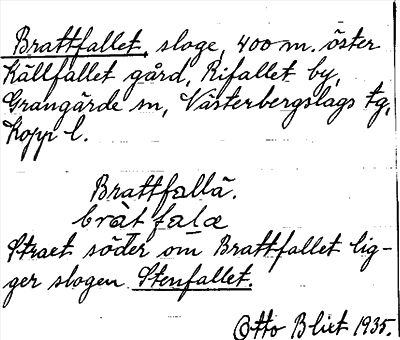 Brattfallet, sloge, 400 m. öster
Källfallet gård, Rifallet by,
Grangärde sn, Västerbergslags tg,
Kopp l.
Brattfallä.
bràtfala
Straet söder om Brattfallet lig-
ger slogen Stenfallet.
Otto Blixt 1935.